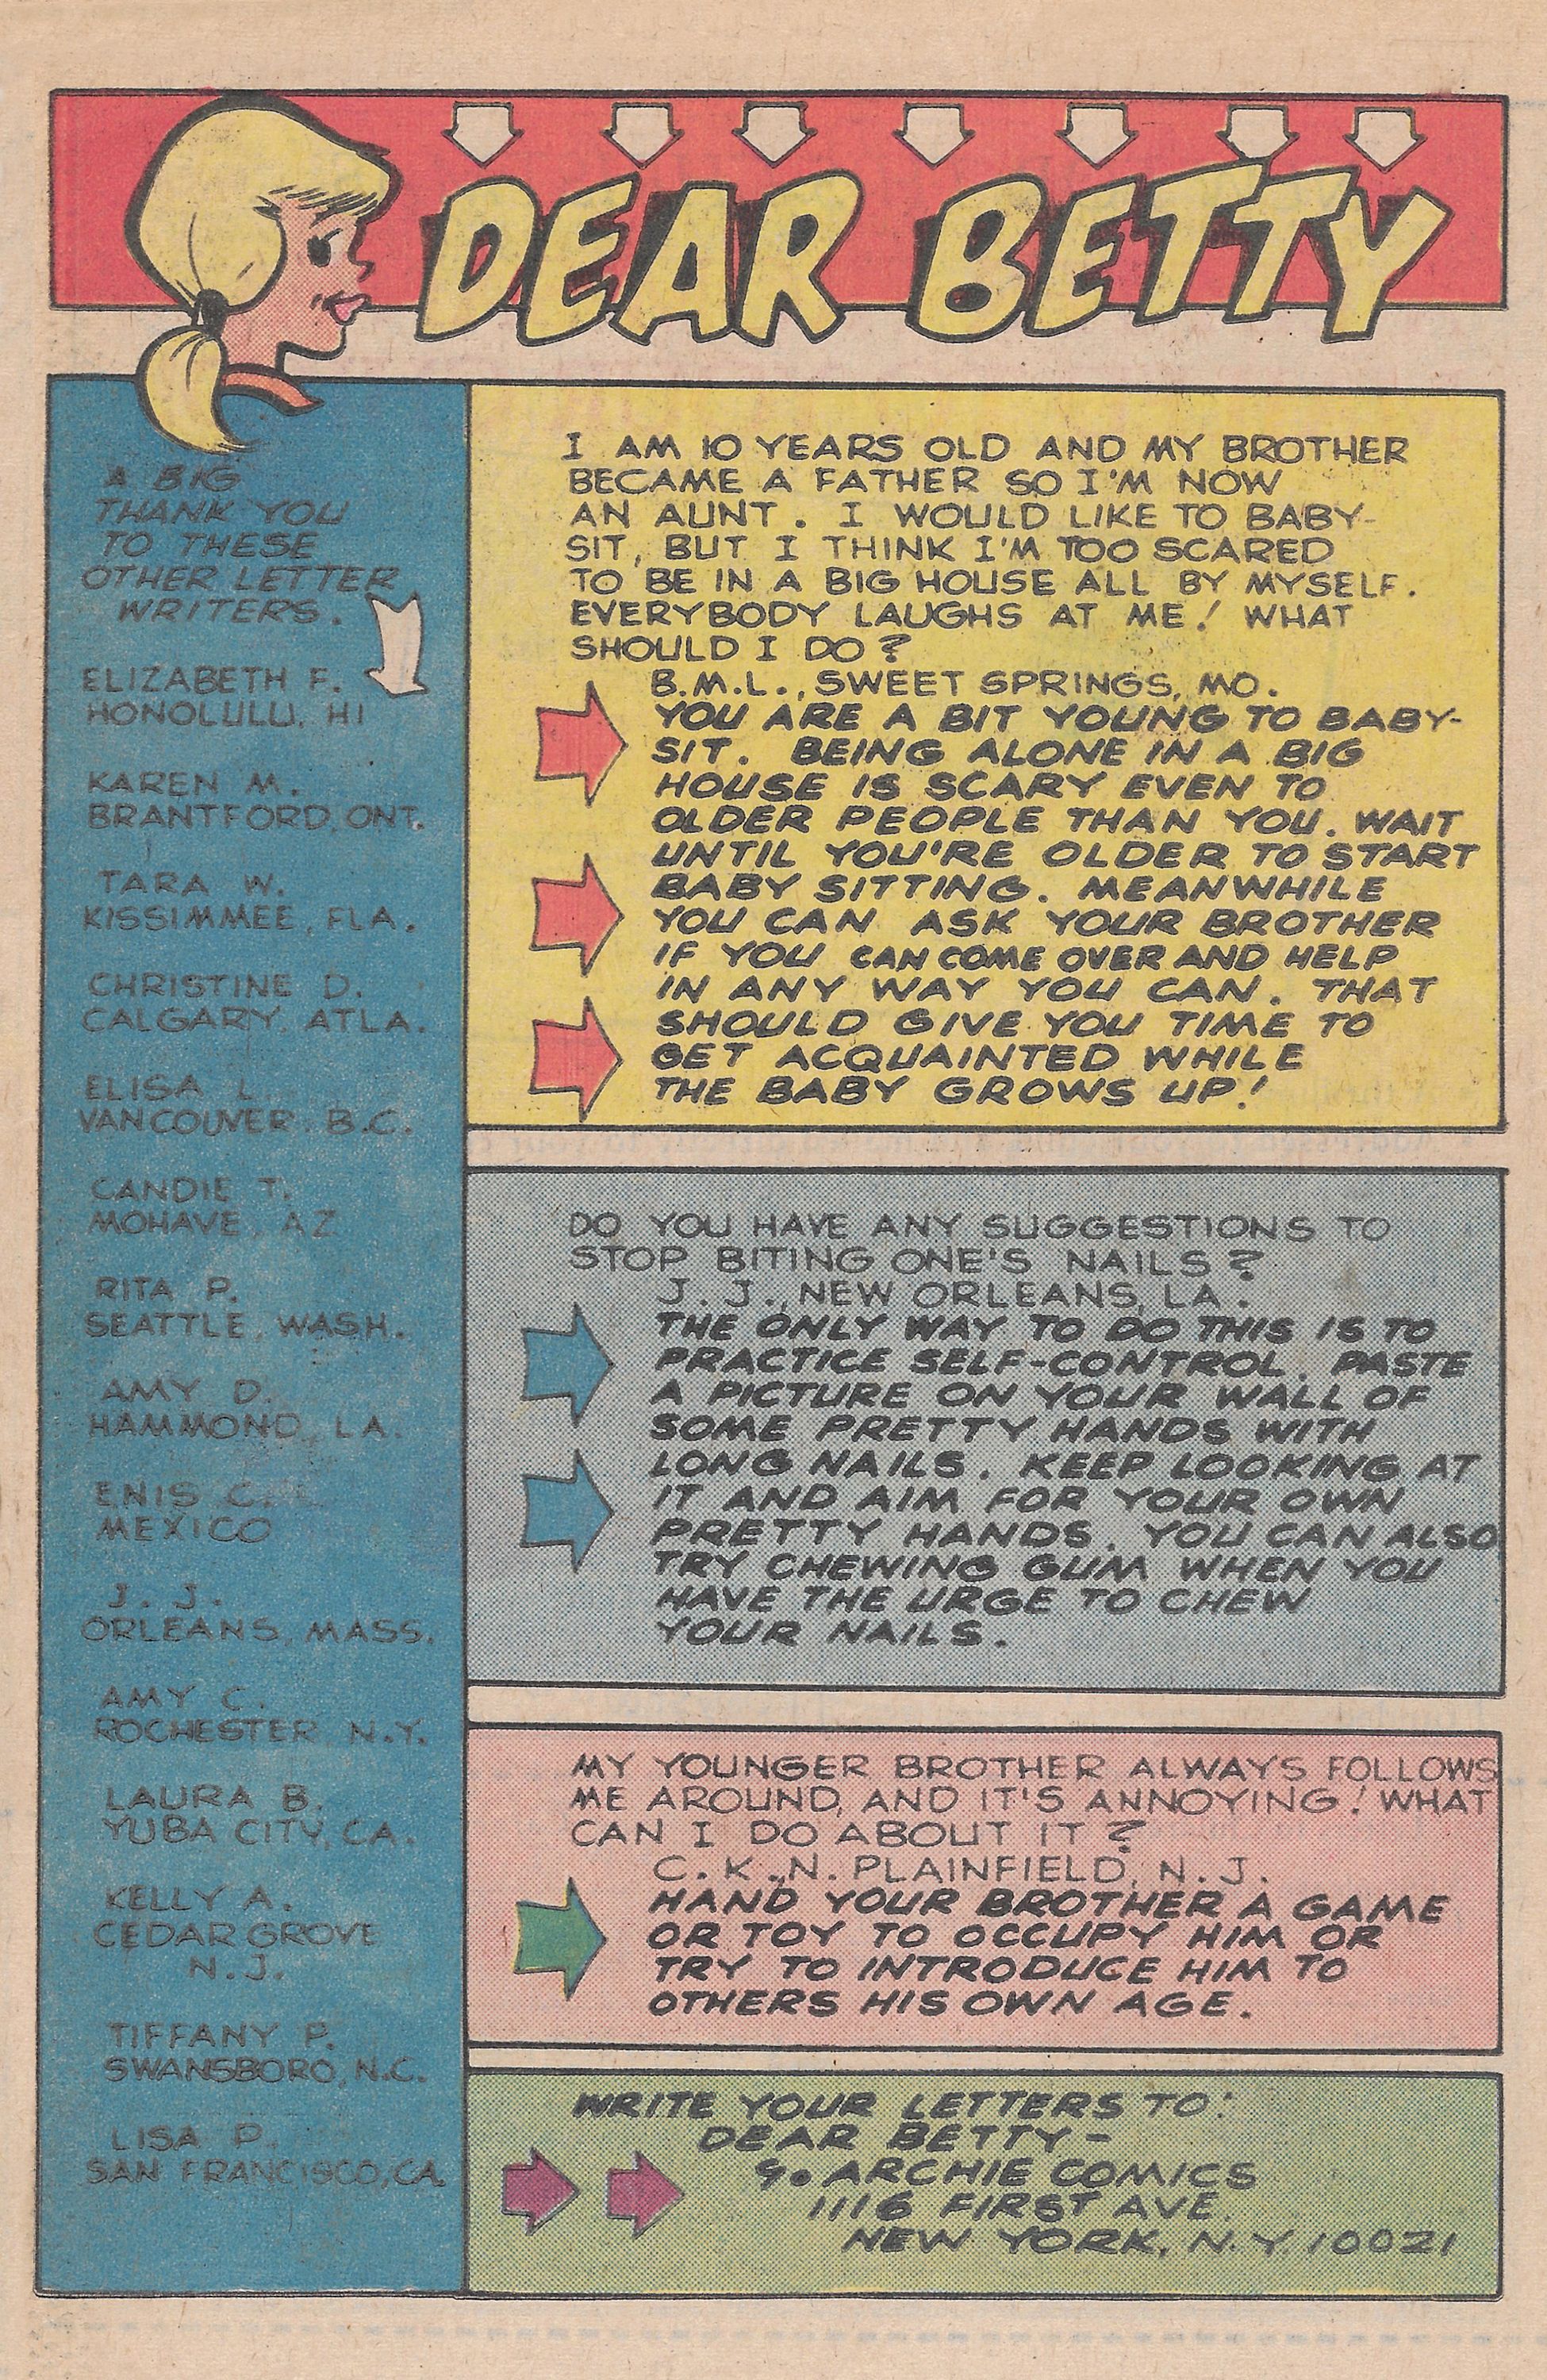 DEAR BETTY
A BIG
THANK YOU
TO THESE
OTHER LETTER
WRITERS.
ELIZABETH F.
HONOLULU, HI
KAREN M.
BRANTFORD, ONT.
TARA W.
KISSIMMEE, FLA.
CHRISTINE D.
CALGARY ATLA.
ELISA L.
VANCOUVER, B.C.
CANDIE T.
MOHAVE, AZ
RITA P.
SEATTLE, WASH.
AMY D.
HAMMOND, LA.
ENIS C.
MEXICO
J. J.
ORLEANS, MASS.
AMY C.
ROCHESTER N.Y.
LAURA B.
YUBA CITY, CA.
KELLY A.
CEDAR GROVE
N.J.
TIFFANY P.
SWANSBORO, N.C.
LISA P.
SAN FRANCISCO, CA.
I AM 10 YEARS OLD AND MY BROTHER
BECAME A FATHER SO I'M NOW
AN AUNT. I WOULD LIKE TO BABY-
SIT, BUT I THINK I'M TOO SCARED
TO BE IN A BIG HOUSE ALL BY MYSELF.
EVERYBODY LAUGHS AT ME! WHAT
SHOULD I DO?
B.M.L., SWEET SPRINGS, MO.
YOU ARE A BIT YOUNG TO BABY-
SIT. BEING ALONE IN A BIG
HOUSE IS SCARY EVEN TO
OLDER PEOPLE THAN YOU. WAIT
UNTIL YOU'RE OLDER TO START
BABY SITTING. MEANWHILE
YOU CAN ASK YOUR BROTHER
IF YOU CAN COME OVER AND HELP
IN ANY WAY YOU CAN. THAT
SHOULD GIVE YOU TIME TO
GET ACQUAINTED WHILE
THE BABY GROWS UP!
DO YOU HAVE ANY SUGGESTIONS TO
STOP BITING ONE'S NAILS?
J. J., NEW ORLEANS, LA.
THE ONLY WAY TO DO THIS IS TO
PRACTICE SELF-CONTROL. PASTE
A PICTURE ON YOUR WALL OF
SOME PRETTY HANDS WITH
LONG NAILS. KEEP LOOKING AT
IT AND AIM FOR YOUR OWN
PRETTY HANDS. YOU CAN ALSO
TRY CHEWING GUM WHEN YOU
HAVE THE URGE TO CHEW
YOUR NAILS.
MY YOUNGER BROTHER ALWAYS FOLLOWS
ME AROUND, AND IT'S ANNOYING! WHAT
CAN I DO ABOUT IT?
C. K., N. PLAINFIELD, N. J.
HAND YOUR BROTHER A GAME
OR TOY TO OCCUPY HIM OR
TRY TO INTRODUCE HIM TO
OTHERS HIS OWN AGE.
WRITE YOUR LETTERS TO:
DEAR BETTY-
ARCHIE COMICS
1116 FIRST AVE.
NEW YORK, N.Y. 10021